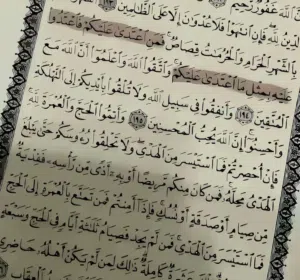 غَفُورٌ رَّحِيمٌ
لِلَّهِ فَإِنِ ٱنتَهَوْا۟ فَلَا عُدْوَٰنَ إِلَّا عَلَى ٱلظَّٰلِمِينَ
بِٱلشَّهْرِ ٱلْحَرَامِ وَٱلْحُرُمَٰتُ قِصَاصٌ فَمَنِ ٱعْتَدَىٰ عَلَيْكُمْ فَٱعْتَدُوا۟
عَلَيْهِ بِمِثْلِ مَا ٱعْتَدَىٰ عَلَيْكُمْ وَٱتَّقُوا۟ ٱللَّهَ وَٱعْلَمُوٓا۟ أَنَّ ٱللَّهَ مَعَ
ٱلْمُتَّقِينَ ١٩٤ وَأَنفِقُوا۟ فِى سَبِيلِ ٱللَّهِ وَلَا تُلْقُوا۟ بِأَيْدِيكُمْ إِلَى ٱلتَّهْلُكَةِ
وَأَحْسِنُوٓا۟ إِنَّ ٱللَّهَ يُحِبُّ ٱلْمُحْسِنِينَ ١٩٥ وَأَتِمُّوا۟ ٱلْحَجَّ وَٱلْعُمْرَةَ لِلَّهِ
فَإِنْ أُحْصِرْتُمْ فَمَا ٱسْتَيْسَرَ مِنَ ٱلْهَدْىِ وَلَا تَحْلِقُوا۟ رُءُوسَكُمْ حَتَّىٰ يَبْلُغَ
ٱلْهَدْىُ مَحِلَّهُۥ فَمَن كَانَ مِنكُم مَّرِيضًا أَوْ بِهِۦٓ أَذًى مِّن رَّأْسِهِۦ فَفِدْيَةٌ
مِّن صِيَامٍ أَوْ صَدَقَةٍ أَوْ نُسُكٍ فَإِذَآ أَمِنتُمْ فَمَن تَمَتَّعَ بِٱلْعُمْرَةِ إِلَى ٱلْحَجِّ
فَمَا ٱسْتَيْسَرَ مِنَ ٱلْهَدْىِ فَمَن لَّمْ يَجِدْ فَصِيَامُ ثَلَٰثَةِ أَيَّامٍ فِى ٱلْحَجِّ وَسَبْعَةٍ
كَامِلَةٌ ذَٰلِكَ لِمَن لَّمْ يَكُنْ أَهْلُهُۥ حَاضِرِى